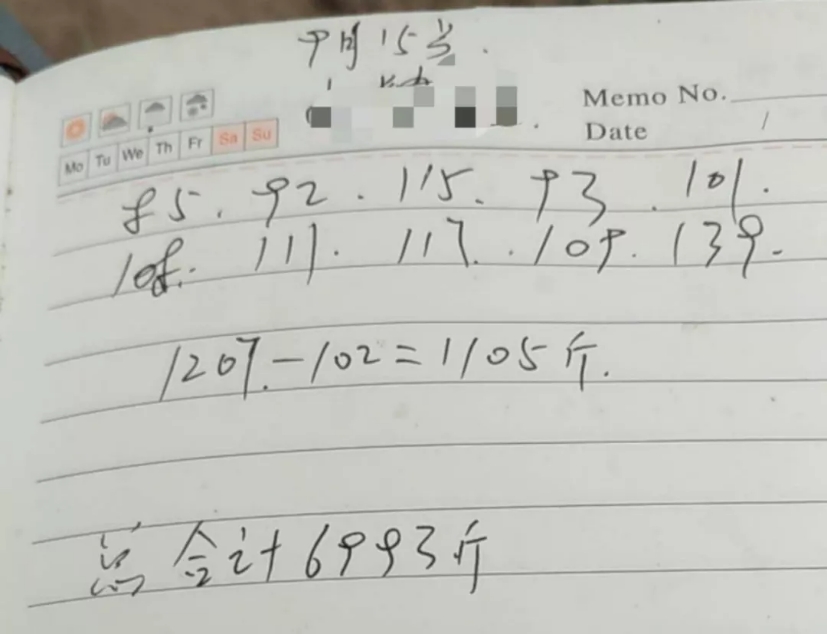 9月15号.
Memo No.
Date /
Mo Tu We Th Fr Sa Su
85. 92. 115. 93. 101.
108. 111. 117. 109. 139.
1207-102=1105斤.
总合计6993斤